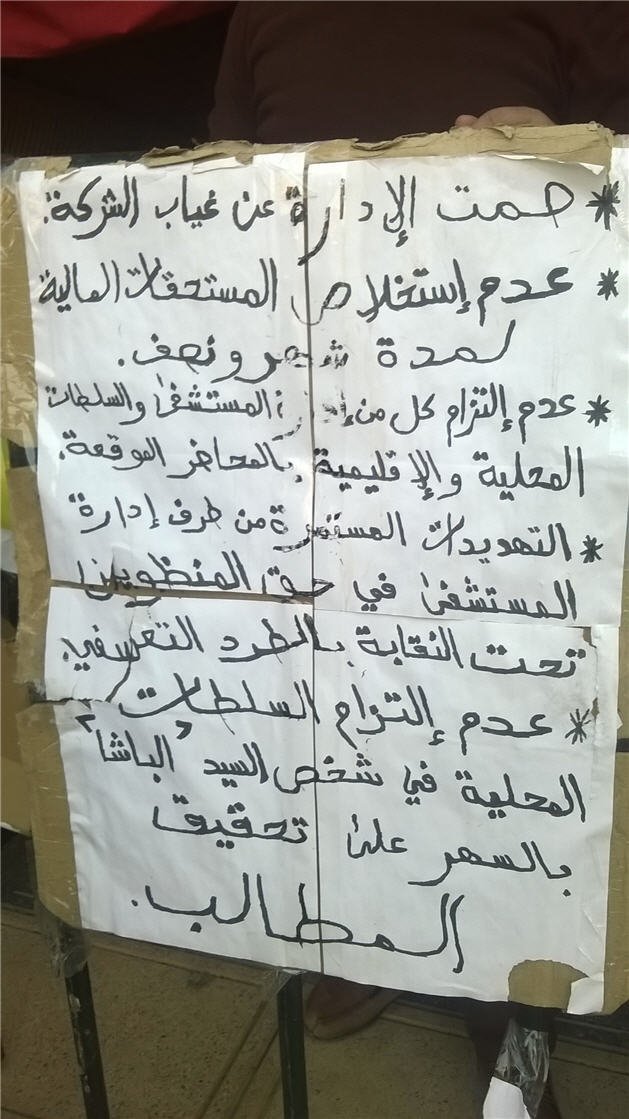 * صمت الإدارة عن غياب الشركة.
* عدم إستخلاص المستحقات المالية
لمدة شهر ونصف.
* عدم إلتزام كل من إدارة المستشفى والسلطات
المحلية والإقليمية بالمحاضر الموقعة.
* التهديدات المستمرة من طرف إدارة
المستشفى في حق المنظوين
تحت النقابة بالطرد التعسفي.
* عدم إلتزام السلطات
المحلية في شخص السيد "الباشا"
بالسهر على تحقيق
المطالب.